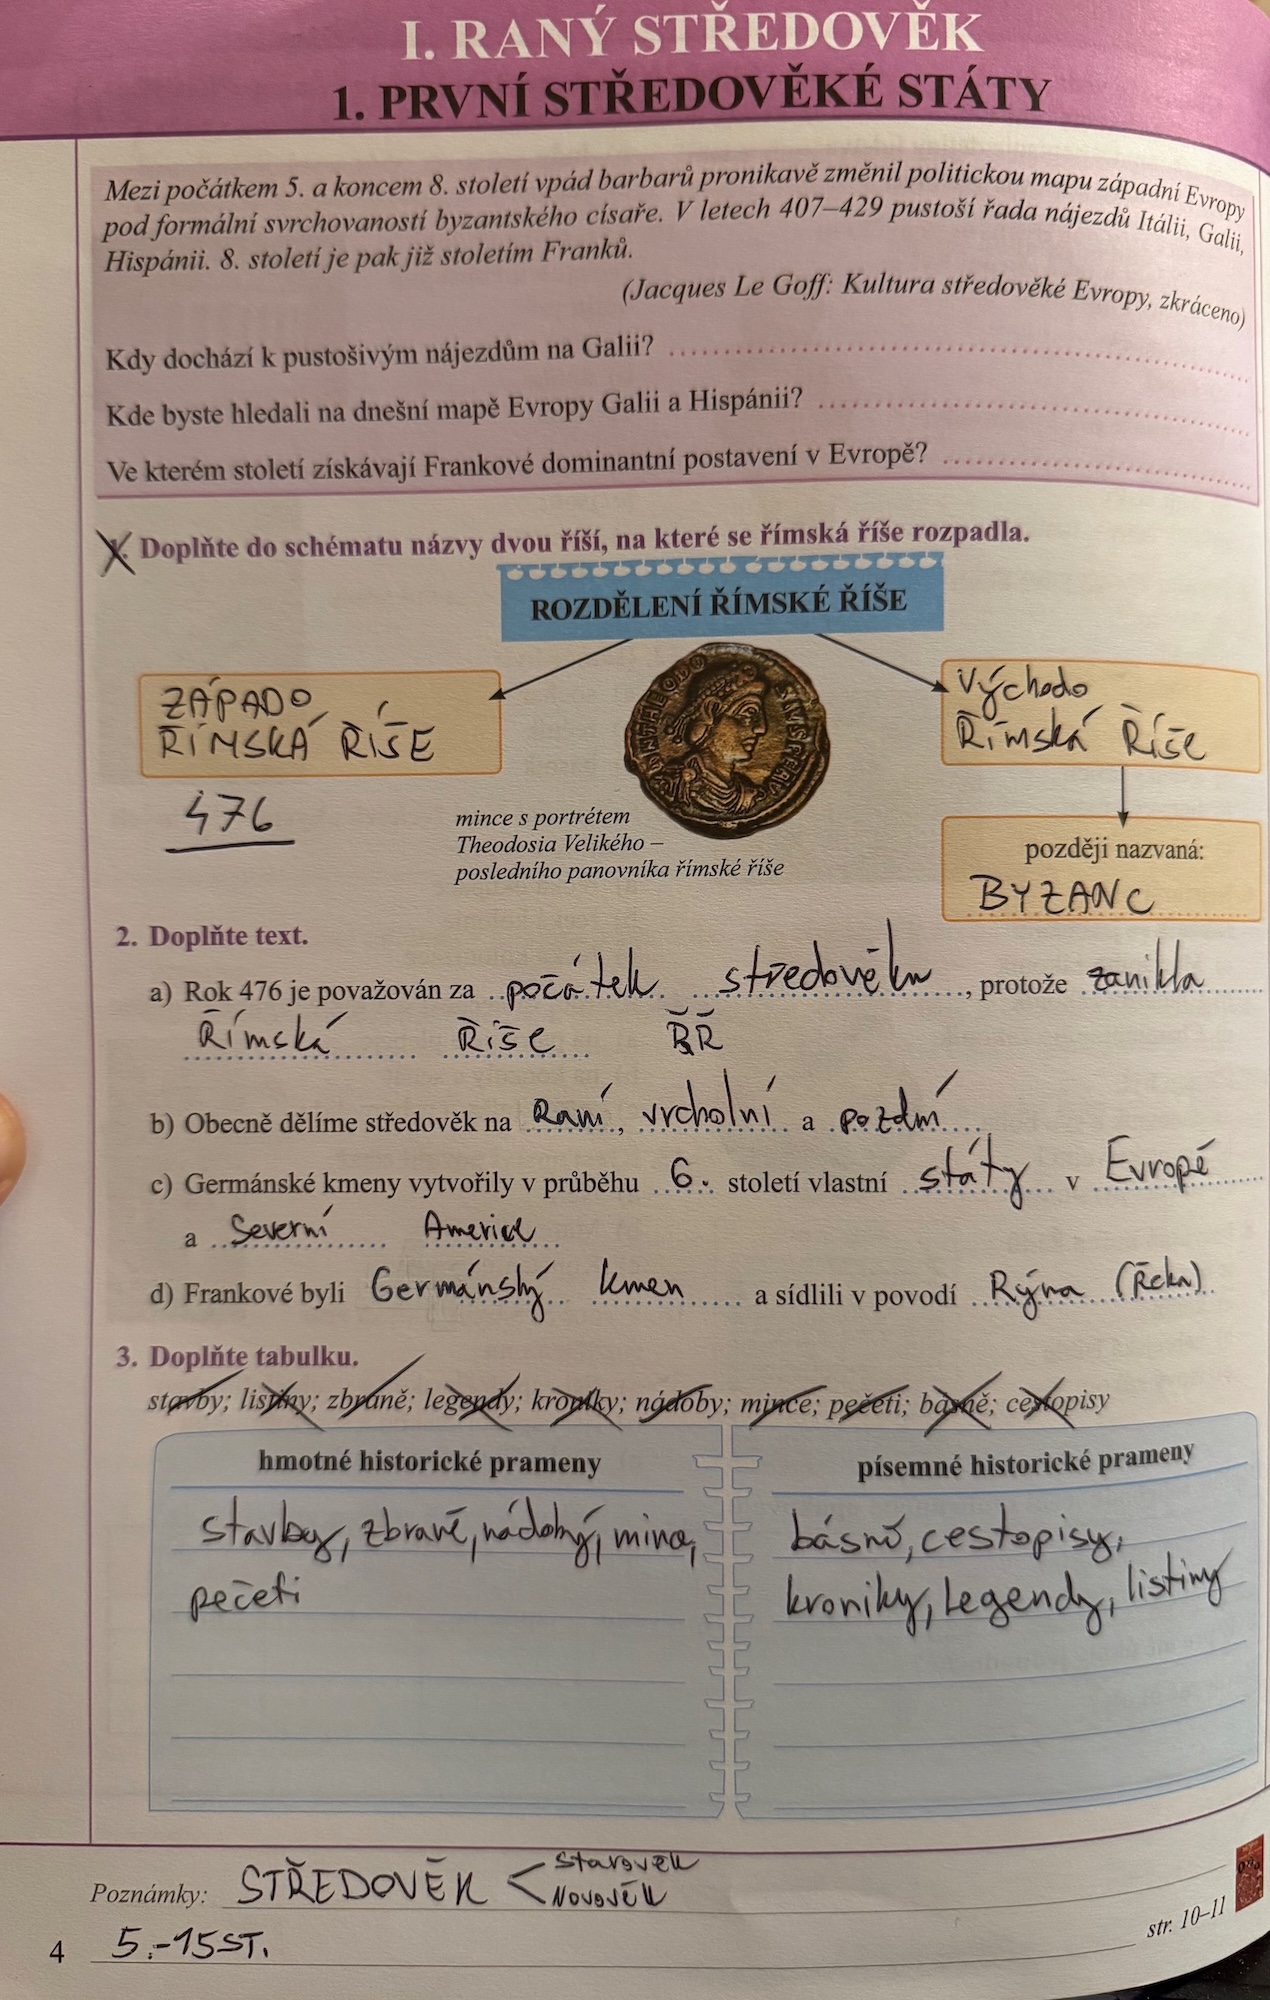 I. RANÝ STŘEDOVĚK
1. PRVNÍ STŘEDOVĚKÉ STÁTY
Mezi počátkem 5. a koncem 8. století vpád barbarů pronikavě změnil politickou mapu západní Evropy
pod formální svrchovaností byzantského císaře. V letech 407–429 pustoší řada nájezdů Itálii, Galii,
Hispánii. 8. století je pak již stoletím Franků.
(Jacques Le Goff: Kultura středověké Evropy, zkráceno)
Kdy dochází k pustošivým nájezdům na Galii?
Kde byste hledali na dnešní mapě Evropy Galii a Hispánii?
Ve kterém století získávají Frankové dominantní postavení v Evropě?
1. Doplňte do schématu názvy dvou říší, na které se římská říše rozpadla.
ROZDĚLENÍ ŘÍMSKÉ ŘÍŠE
ZÁPADO
ŘÍMSKÁ ŘÍŠE
476
Východo
Římská Říše
mince s portrétem
Theodosia Velikého –
posledního panovníka římské říše
později nazvaná:
BYZANC
2. Doplňte text.
a) Rok 476 je považován za počátek středověku, protože zanikla
Římská Říše
b) Obecně dělíme středověk na Raní, vrcholní a pozdní
c) Germánské kmeny vytvořily v průběhu 6. století vlastní státy v Evropě
a Severní Americe
d) Frankové byli Germánský kmen a sídlili v povodí Rýna (Řeka)
3. Doplňte tabulku.
stavby; listiny; zbraně; legendy; kroniky; nádoby; mince; pečeti; básně; cestopisy
hmotné historické prameny
stavby, zbraně, nádobý, mince,
pečeti
písemné historické prameny
básně, cestopisy,
kroniky, legendy, listiny
Poznámky: STŘEDOVĚK < Starověk
Novověk
5.-15 ST.
str. 10–11
4